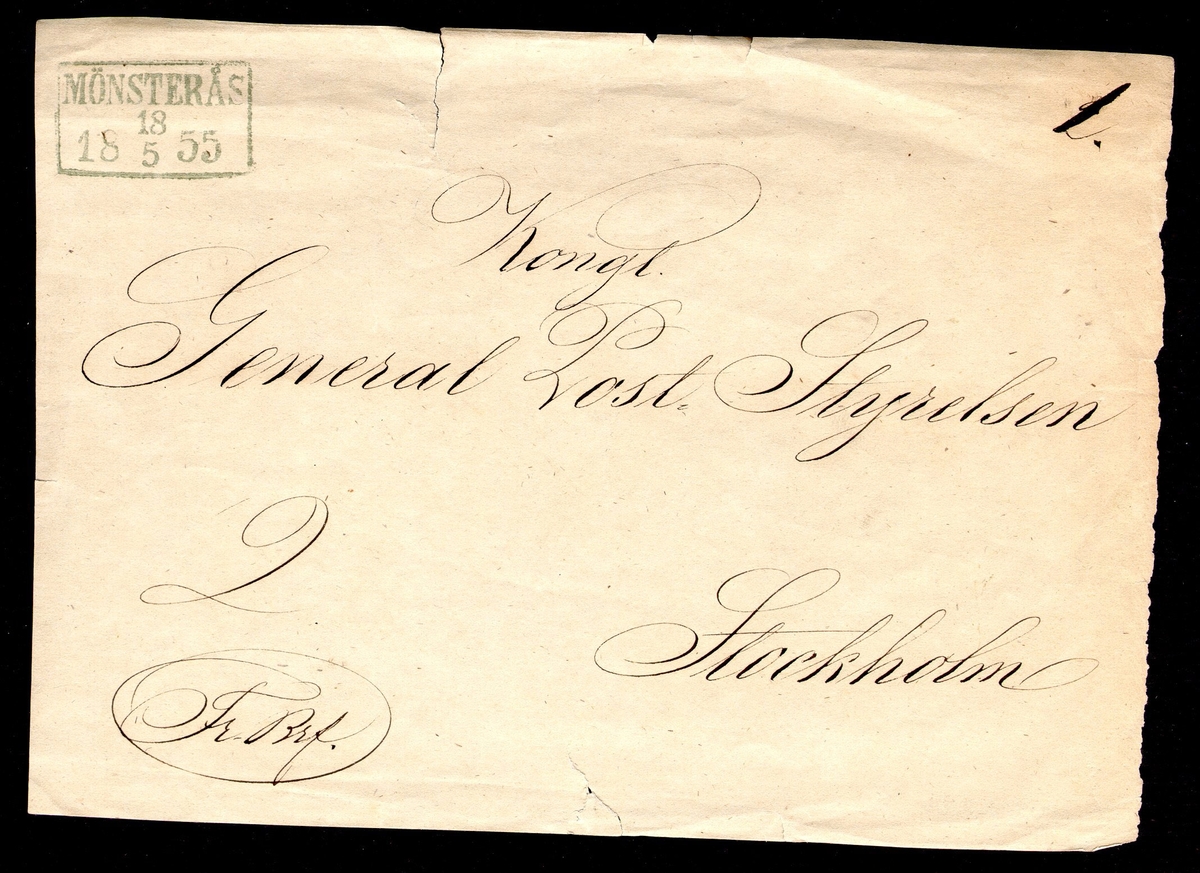 MÖNSTERÅS
18
18 5 55
1.
Kongl.
General Post-Styrelsen
2
Stockholm
Fr. Brf.